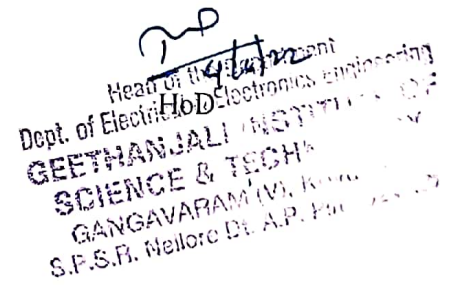 Head of the Department
4/4/22
Dept. of Electrical & Electronics Engineering
HoD
GEETHANJALI INSTITUTE OF
SCIENCE & TECH
GANGAVARAM (V),
S.P.S.R. Nellore Dt. A.P.